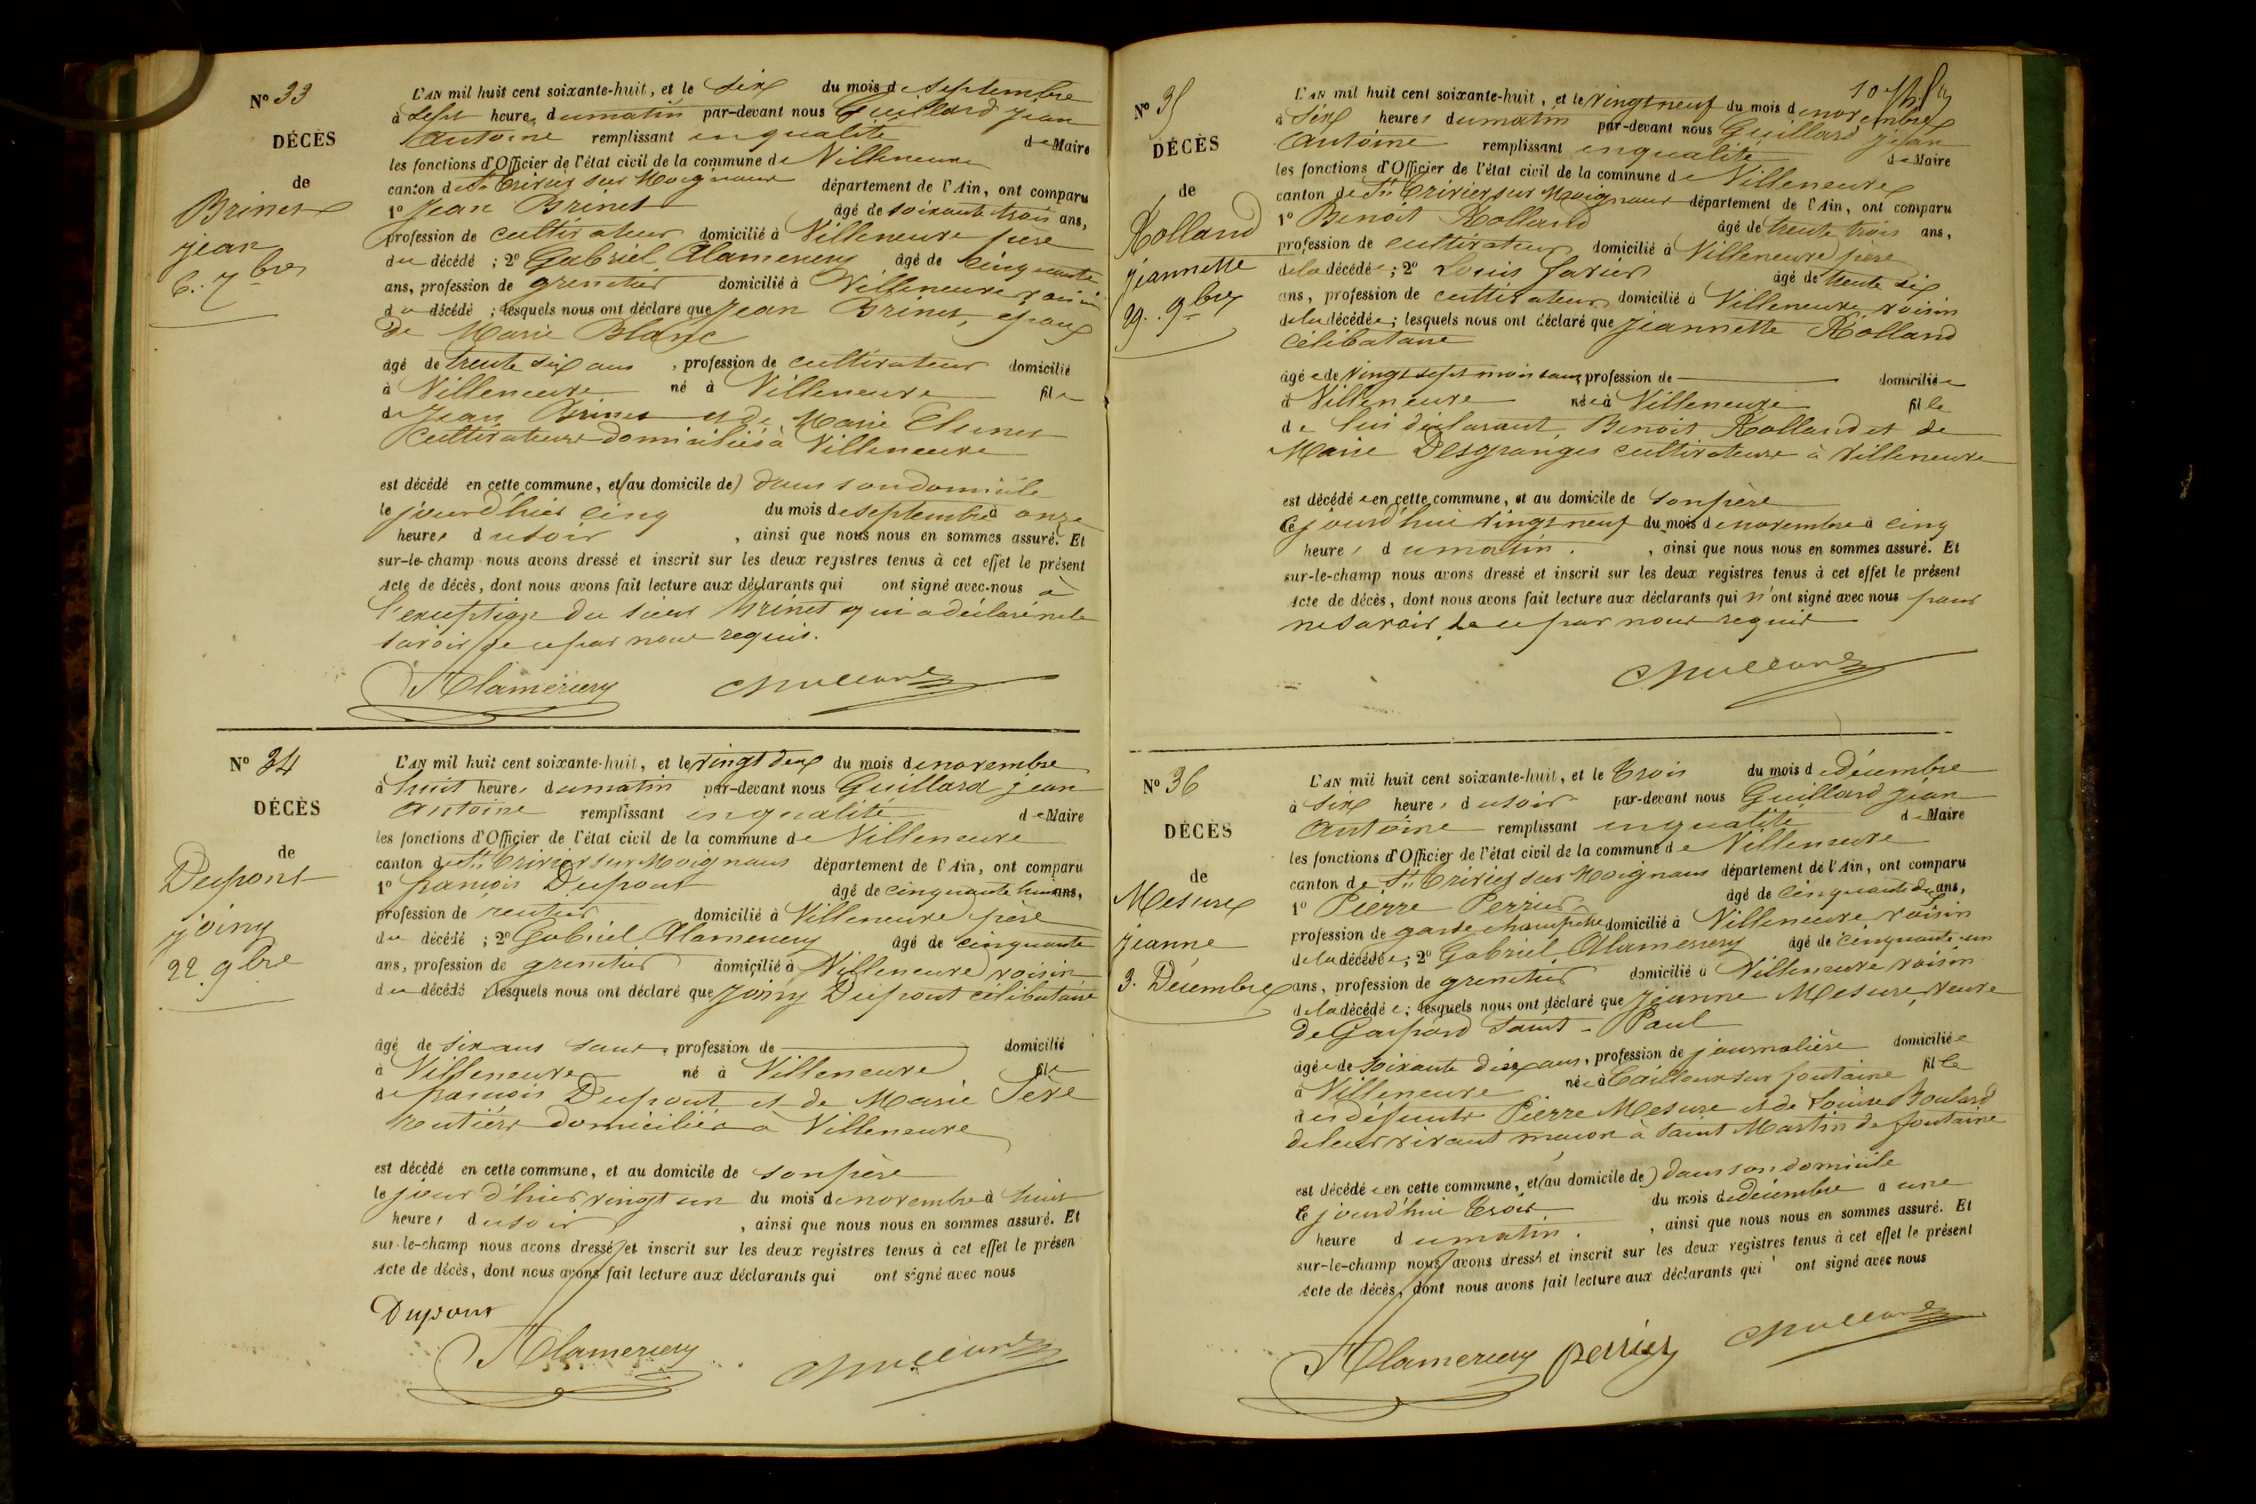 N° 33
DÉCÈS
de
Brinet
jean
6. 7bre
L'AN mil huit cent soixante-huit, et le six du mois de septembre
à sept heures du matin par-devant nous Guillard jean
antoine remplissant en qualité de Maire
les fonctions d'Officier de l'état civil de la commune de Villeneuve
canton de St Trivier sur Moignans département de l'Ain, ont comparu
1° Jean Brinet âgé de soixante trois ans,
profession de cultivateur domicilié à Villeneuve père
du décédé ; 2° Gabriel Alamercery âgé de cinquante
ans, profession de grenetier domicilié à Villeneuve voisin
du décédé ; lesquels nous ont déclaré que Jean Brinet, époux
de Marie Blanc
âgé de trente six ans , profession de cultivateur domicilié
à Villeneuve né à Villeneuve fils
de Jean Brinet et de Marie
cultivateurs domiciliés à Villeneuve
est décédé en cette commune, et (au domicile de) dans son domicile
le jour d'hier cinq du mois de septembre à onze
heures du soir , ainsi que nous nous en sommes assuré. Et
sur-le-champ nous avons dressé et inscrit sur les deux registres tenus à cet effet le présent
Acte de décès, dont nous avons fait lecture aux déclarants qui ont signé avec nous à
l'exception du sieur Brinet qui a déclaré ne le
savoir de ce par nous requis.
Alamercery Guillard
N° 34
DÉCÈS
de
Dupont
joiny
22. 9bre
L'AN mil huit cent soixante-huit, et le vingt deux du mois de novembre
à huit heures du matin par-devant nous Guillard jean
antoine remplissant en qualité de Maire
les fonctions d'Officier de l'état civil de la commune de Villeneuve
canton de St Trivier sur Moignans département de l'Ain, ont comparu
1° francois Dupont âgé de cinquante huit ans,
profession de rentier domicilié à Villeneuve père
du décédé ; 2° Gabriel Alamercery âgé de cinquante
ans, profession de grenetier domicilié à Villeneuve voisin
du décédé lesquels nous ont déclaré que Joiny Dupont célibataire
âgé de six ans sans profession de domicilié
à Villeneuve né à Villeneuve fils
de francois Dupont et de Marie
rentiers domiciliés à Villeneuve
est décédé en cette commune, et au domicile de son père
le jour d'hier vingt un du mois de novembre à huit
heures du soir , ainsi que nous nous en sommes assuré. Et
sur-le-champ nous avons dressé et inscrit sur les deux registres tenus à cet effet le présen
Acte de décès, dont nous avons fait lecture aux déclarants qui ont signé avec nous
Dupont
Alamercery Guillard
N° 35
DÉCÈS
de
Rolland
jeannette
29. 9bre
L'AN mil huit cent soixante-huit, et le vingt neuf du mois de novembre
à six heures du matin par-devant nous Guillard jean
antoine remplissant en qualité de Maire
les fonctions d'Officier de l'état civil de la commune de Villeneuve
canton de St Trivier sur Moignans département de l'Ain, ont comparu
1° Benoit Rolland âgé de trente trois ans,
profession de cultivateur domicilié à Villeneuve père
de la décédée ; 2° Louis âgé de trente six
ans, profession de cultivateur domicilié à Villeneuve, voisin
de la décédée ; lesquels nous ont déclaré que Jeannette Rolland
célibataire
âgée de vingt sept mois sans profession de domiciliée
à Villeneuve née à Villeneuve fille
de lui déclarant, Benoit Rolland et de
Marie Desgranges cultivateurs à Villeneuve
est décédée en cette commune, et au domicile de son père
ce jourd'hui vingt neuf du mois de novembre à cinq
heures du matin. , ainsi que nous nous en sommes assuré. Et
sur-le-champ nous avons dressé et inscrit sur les deux registres tenus à cet effet le présent
Acte de décès, dont nous avons fait lecture aux déclarants qui n'ont signé avec nous pour
ne savoir, de ce par nous requis
Guillard
N° 36
DÉCÈS
de
Mesure
jeanne
3. Décembre
L'AN mil huit cent soixante-huit, et le Trois du mois de décembre
à six heures du soir par-devant nous Guillard jean
antoine remplissant en qualité de Maire
les fonctions d'Officier de l'état civil de la commune de Villeneuve
canton de St Trivier sur Moignans département de l'Ain, ont comparu
1° Pierre Perrier âgé de cinquante six ans,
profession de garde champêtre domicilié à Villeneuve voisin
de la décédée ; 2° Gabriel Alamercery âgé de cinquante un
ans, profession de grenetier domicilié à Villeneuve voisin
de la décédée ; lesquels nous ont déclaré que Jeanne Mesure, veuve
de Gaspard Saint-Paul
âgée de soixante dix ans, profession de journalière domiciliée
à Villeneuve née à Cailloux sur fontaine fille
des défunts Pierre Mesure et de Louise Boulard
de leur vivant à Saint Martin de fontaine
est décédée en cette commune, et (au domicile de) dans son domicile
ce jourd'hui Trois du mois de décembre à une
heure du matin. , ainsi que nous nous en sommes assuré. Et
sur-le-champ nous avons dressé et inscrit sur les deux registres tenus à cet effet le présent
Acte de décès, dont nous avons fait lecture aux déclarants qui ont signé avec nous
Alamercery perrier Guillard